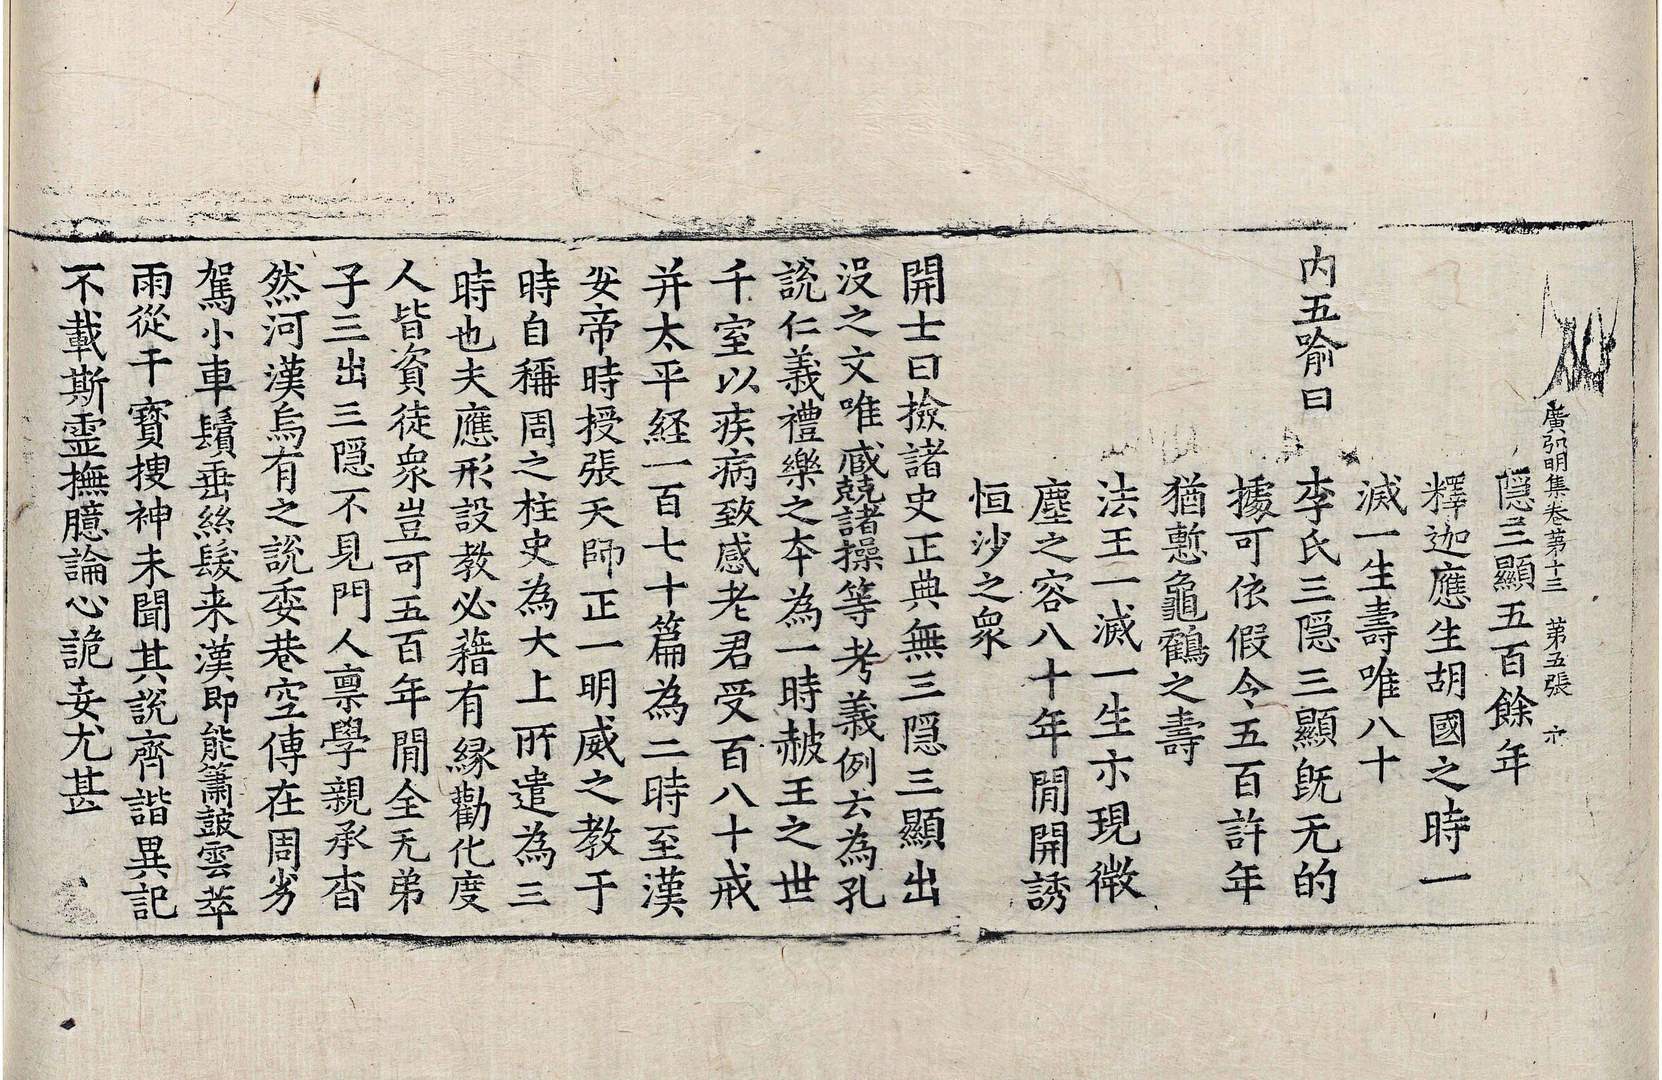 廣弘明集卷第十三 第五張 亦
隠三顯五百餘年
釋迦應生胡國之時一
滅一生壽唯八十
内五喻曰 李氏三隠三顯旣无的
據可依假令五百許年
猶慙龜鶴之壽
法王一滅一生亦現微
塵之容八十年閒開誘
恒沙之衆
開士曰撿諸史正典無三隠三顯出
没之文唯臧兢諸操等考義例云為孔
說仁義禮樂之本為一時赧王之世
千室以疾病致感老君受百八十戒
并太平経一百七十篇為二時至漢
安帝時授張天師正一明威之教于
時自稱周之柱史為大上所遣為三
時也夫應形設教必藉有縁勸化度
人皆資徒衆豈可五百年閒全无弟
子三出三隠不見門人禀學親承杳
然河漢烏有之說委巷空傳在周劣
駕小車鬚垂絲髮来漢即能簫鼓雲萃
雨從干寶搜神未聞其說齊諧異記
不載斯霊撫臆論心詭妄尤甚